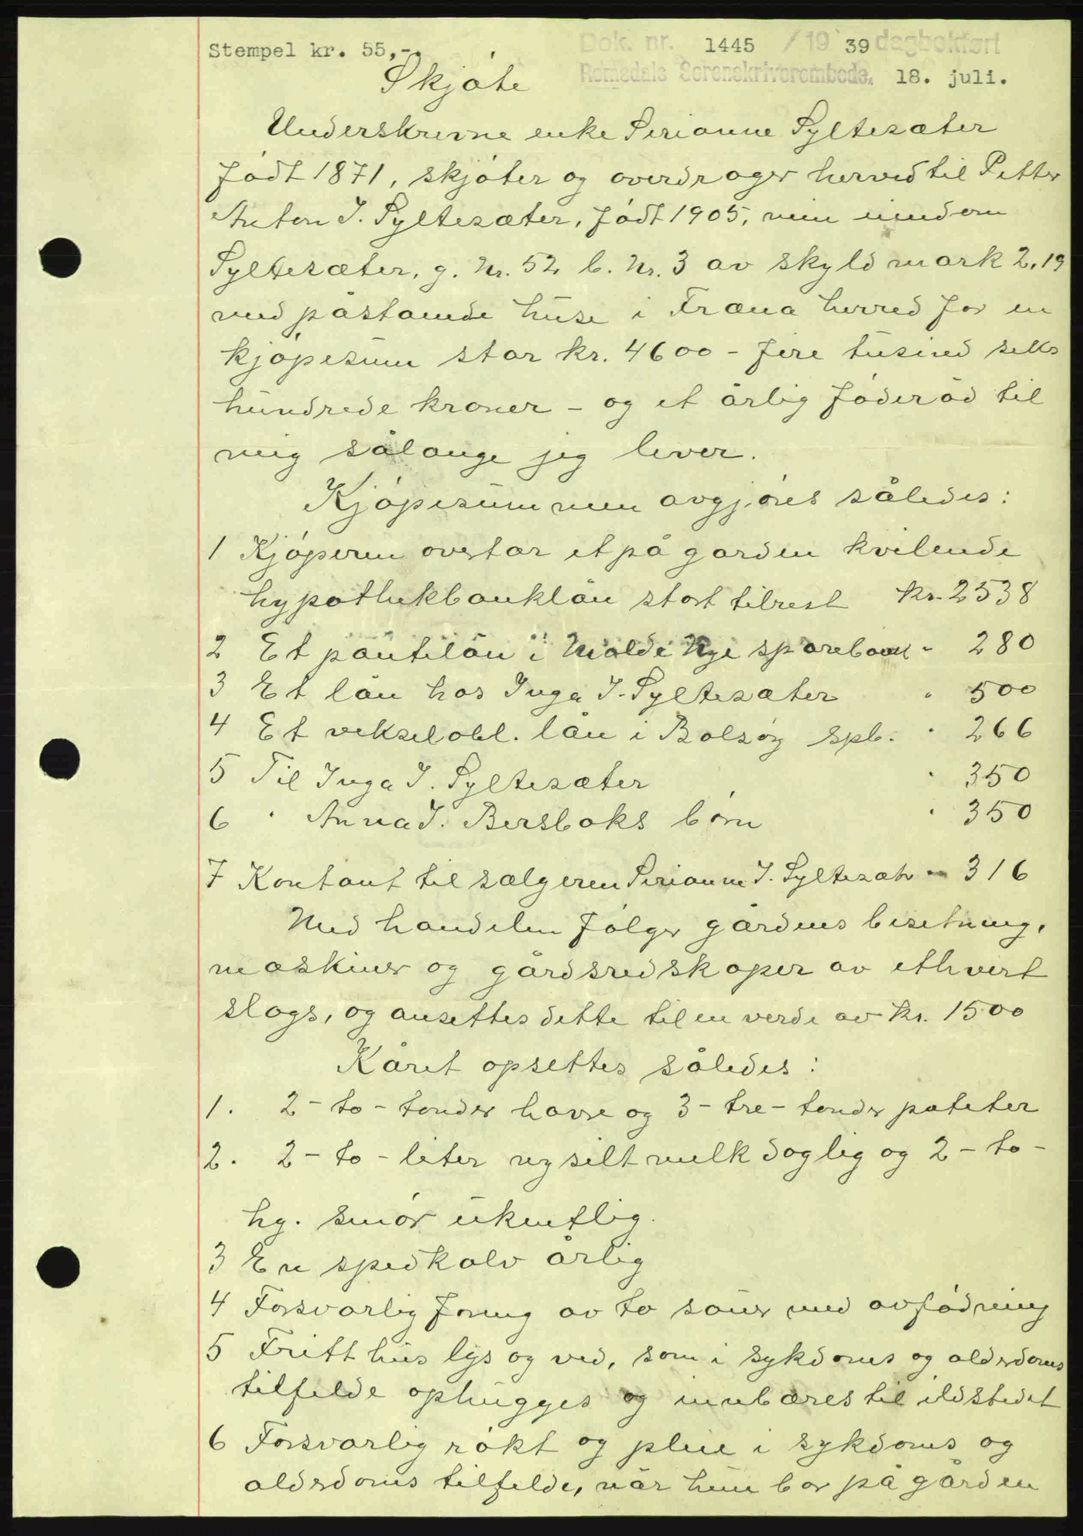 Stempel kr. 55,-.
Dok. nr. 1445 / 19 39 dagbokført
Romsdals Sorenskriverembede, 18. juli.
Skjøte
Underskrevne enke Perianne Syltesæter
født 1871, skjøter og overdrager herved til Petter
Anton J. Syltesæter, født 1905, min eiendom
Syltesæter, g. nr. 52 b. nr. 3 av skyld mark 2,19
med påståmde huse i Fræna herred for en
kjøpesum stor kr. 4600 - fire tusined seks
hundrede kroner - og et årlig føderåd til
mig sålange jeg lever.
Kjøpesummen avgjøres således:
1 Kjøperen overtar et på garden kvilende
hypothekbanklån stort tilrest kr. 2538
2 Et pantelån i Molde Nye sparebank " 280
3 Et lån hos Inga J. Syltesæter " 500
4 Et veksel obl. lån i Bolsøy spb. " 266
5 Til Inga J. Syltesæter " 350
6 " Anna J. Bersboks børn " 350
7 Kontant til sælgeren Perianne J. Syltesæt " 316
Med handelen følger gårdens besetning,
maskiner og gårdsredskaper av ethvert
slags, og ansettes dette til en verde av kr. 1500
Kåret opsettes således:
1. 2 - to - tønder havre og 3 - tre - tønder poteter
2. 2 - to - liter nysilt melk daglig og 2 - to -
hg. smør ukentlig.
3 En spedkalv årlig
4 Forsvarlig foring av to sauer med avfødning
5 Fritt hus lys og ved, som i sykdoms og alderdoms
tilfelde ophugges og innbæres til ildstedet
6 Forsvarlig røkt og pleie i sykdoms og
alderdoms tilfelde, når hun bor på gården